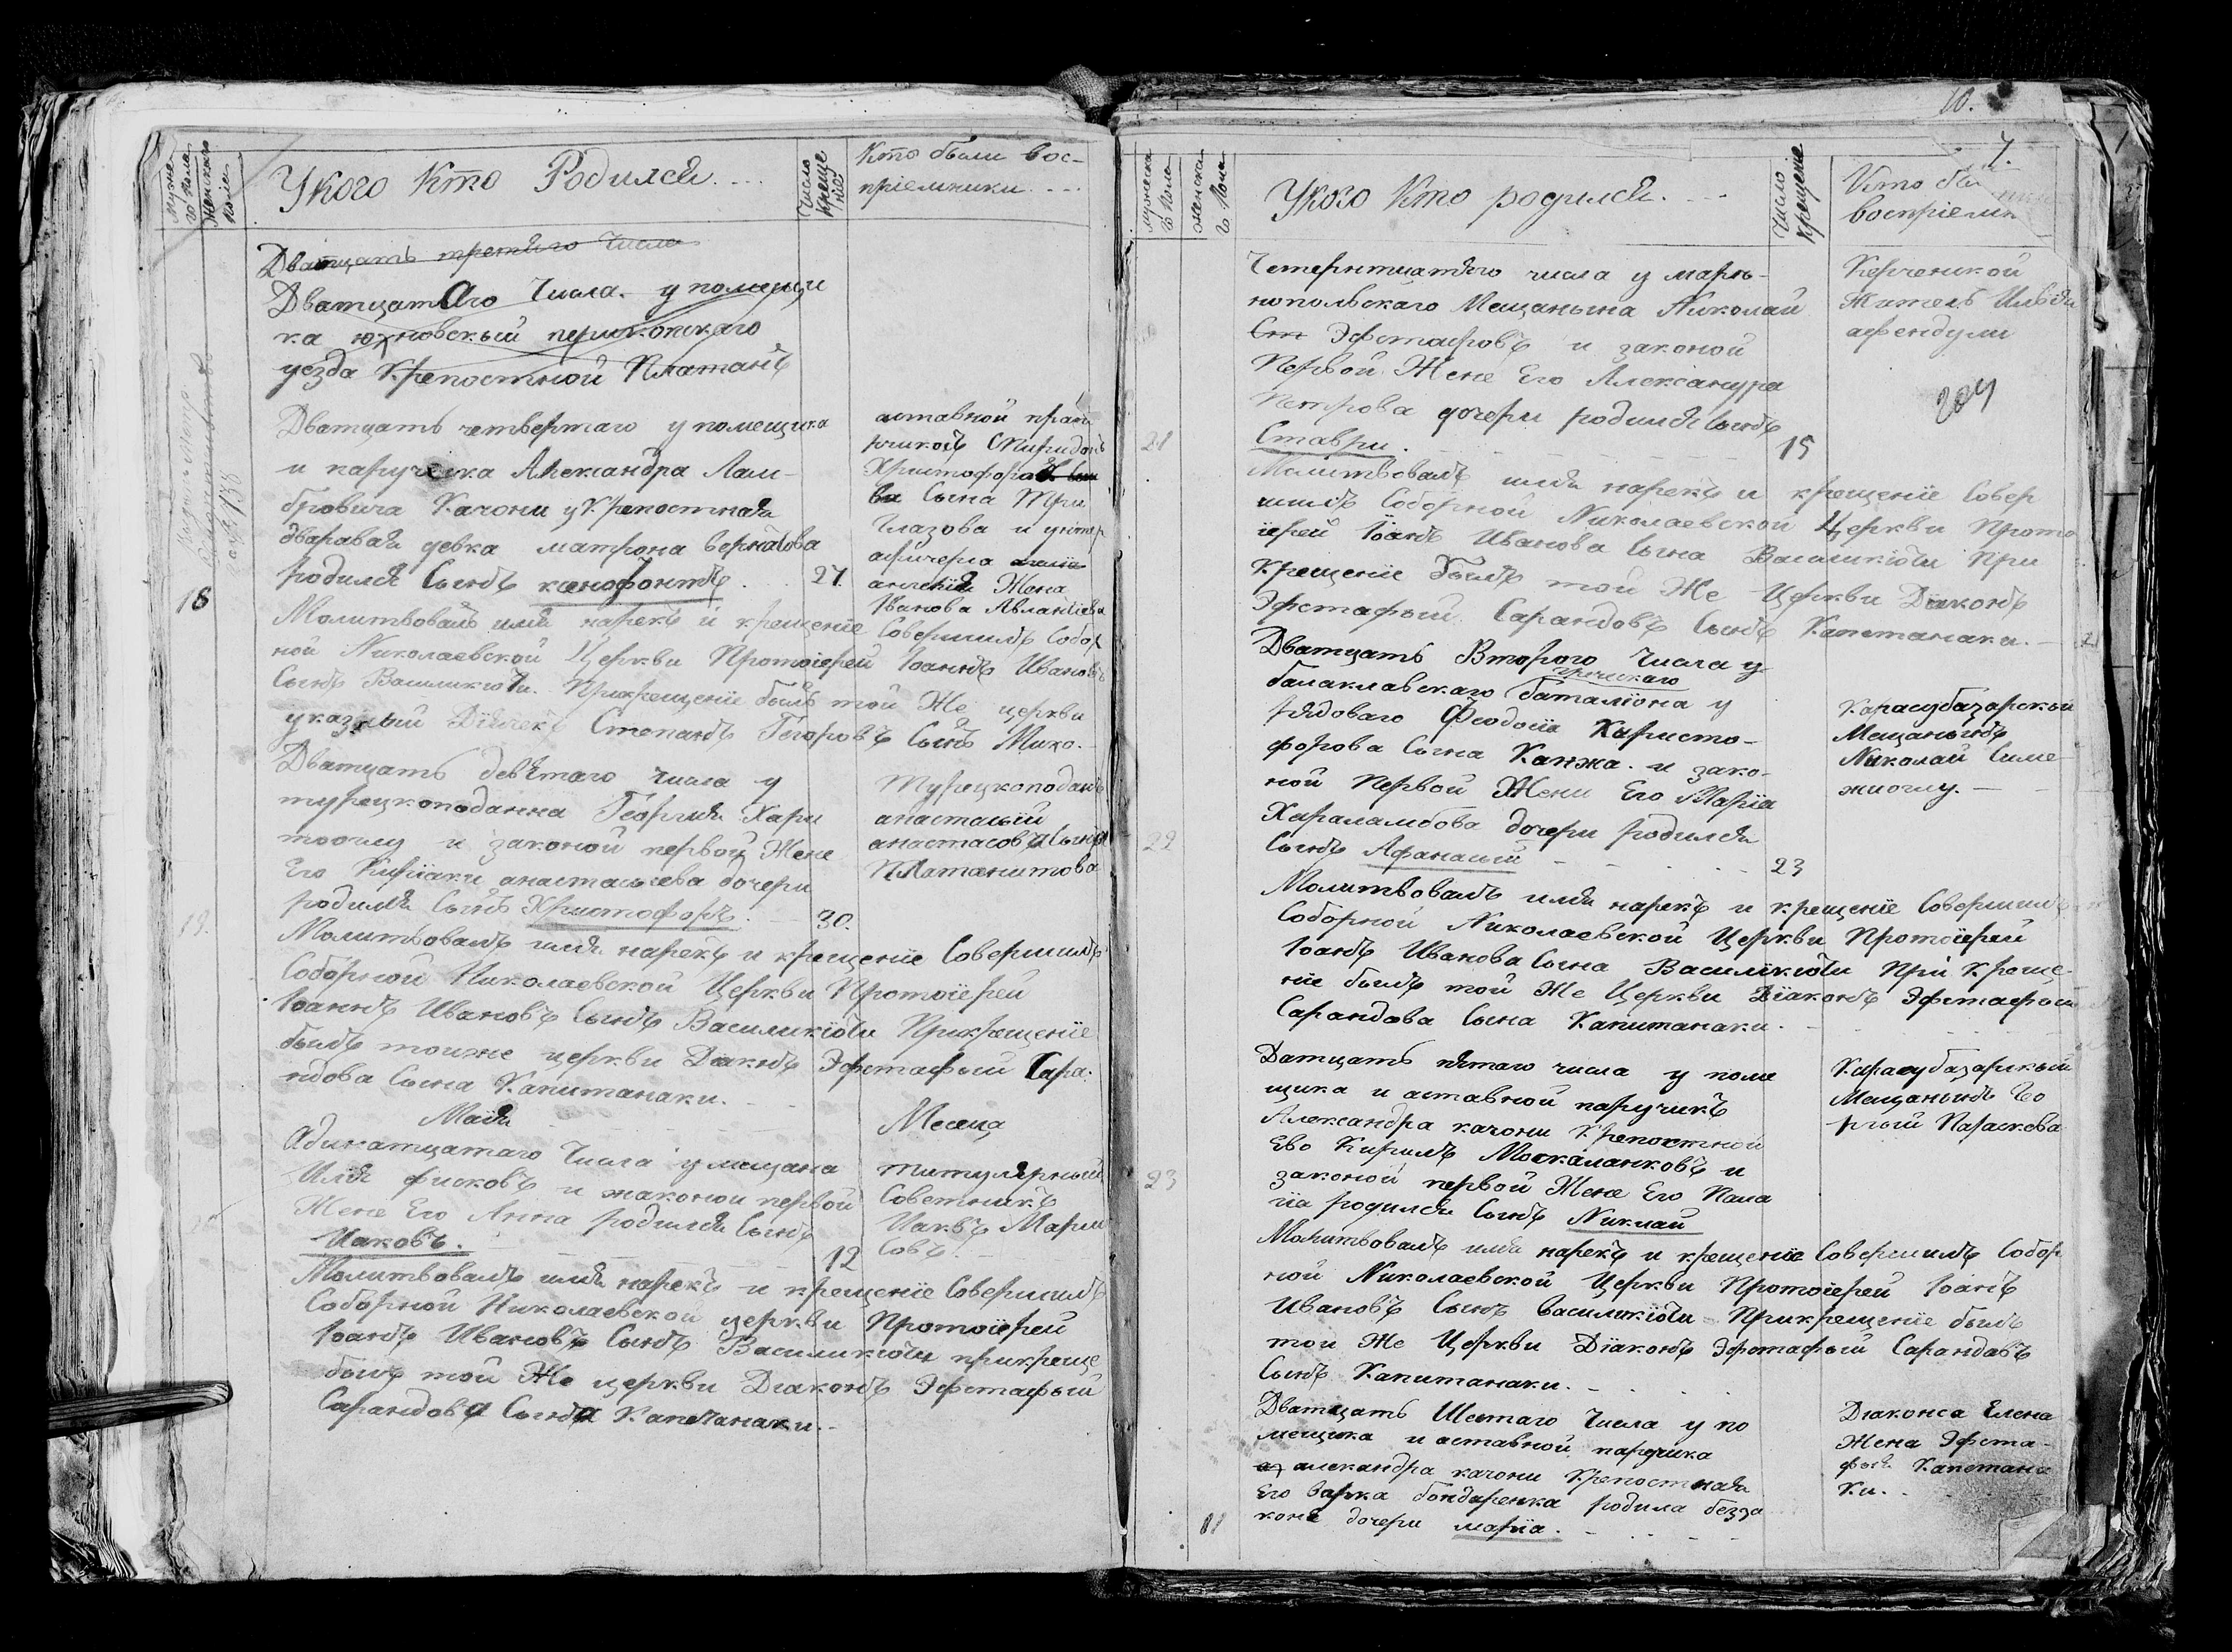 Мужеска
го Пола
Женскаго
Пола
У кого Кто Родился....
Число
Креще
ніе
Кто были вос-
пріемники ...
Дватцать третяго Числа
Дватцатаго Числа. у помещи
ка
уезда Крепостной Платанъ
Дватцать четвертаго у помещика
и паручика Александра Лам-
бровича Качони у Крепостная
дваравая девка матрона
родился Сынъ ксенофонтъ . . 27.
18
аставной прапо
рчикъ Спиридонъ
Христофора
ва Сына Три
Глазова и унтер
афичера
Жена
Иванова
Молитвовалъ имя нарекъ и крещеніе Совершилъ Собор
ной Николаевской Церкви Протоіерей Іоаннъ Ивановъ
Сынъ Василикіоти. Прикрещеніе былъ той Же церкви
указный Діячекъ Степанъ Гегоровъ Сынъ Мико.-
Дватцать девятаго числа у
турецкоподанна Георгия Хари
тооглу и законой первой Жене
Его Киріаки анастасиева дочери
родился Сынъ Христофоръ. 30.
19.
Турецкоподанъ
анастасый
анастасова Сына
Платанитова
Молитвовалъ имя нарекъ и крещеніе Совершилъ
Соборной Николаевской Церкви Протоіерей
Іоаннъ Ивановъ Сынъ Василикіоти Прикрещеніе
былъ тойже церкви Діаконъ Эфстафый Сара.
ндова Сына Капитанаки.
Мая Месеца
Адинатцатаго Числа у мещана
Илья фисковъ и законои первой
Жене Его Анна родился Сынъ
Иаковъ. 12
20
титулярный
Советникъ
Иаквъ Марги
совъ.
Молитвовалъ имя нарекъ и крещеніе Совершилъ
Соборной Николаевской церкви Протоіерей
Іоанъ Ивановъ Сынъ Василикіоти прикреще
былъ той Же церкви Діаконъ Эфстафый
Сарандова Сына Капетанаки.-
10.
7.
мужеска
го Пола
женска
го Пола
У кого Кто родился. ...
Число
Крещеніе
Кто бы
воспріемн
Четернтцатяго числа у маріу-
нопольскаго Мещанына Николай
Ст Эфстафовъ и законой
Первой Жене Его Александра
Петрова дочери родился Сынъ
Ставри. 15
21
Керченской
Житель Илья
афендули
204
Молитвовалъ имя нарекъ и крещеніе Совер
шилъ Соборной Николаевской Церкви Прото
іерей Іоанъ Иванова Сына Василикіоти При
Крещеніе былъ той Же Церкви Діаконъ
Эфстафый Сарандовъ Сынъ Капетанаки.
Дватцать Второго Числа у
греческаго
балаклавскаго баталіона у
рядоваго Феодосіа Христо-
форова Сына Канжа. и зако-
ной Первой Жени Его Маріа
Хараламбова дочери родился
Сынъ Афанасый 23
22
Карасубазарской
Мещанынъ
Николай Симе
жиоглу.
Молитвовалъ имя нарекъ и крещеніе Совершилъ
Соборной Николаевской Церкви Протоіерей
Іоанъ Иванова Сына Василікіоти При Креще-
ніе былъ той Же Церкви Діаконъ Эфстафый
Сарандова Сына Капитанаки.
Датцать пятаго числа у поме
щика и аставной паручикъ
Александра качони Крепостной
Ево Кирилъ Москаланковъ и
законой первой Жене Его Пала
гіа родился Сынъ Николай
23
Карасубазарскый
Мещанынъ Гео
ргый Параскева
Молитвовалъ имя нарекъ и крещеніе Совершилъ Собор
ной Николаевской Церкви Протоіерей Іоанъ
Ивановъ Сынъ василикіоти Прикрещеніе былъ
той Же Церкви Діаконъ Эфстафый Сарандавъ
Сынъ Капитанаки.
Дватцать Шестаго Числа у по
мещика и аставной паручика
александра качони Крепостная
Его варка бондаренка родила безза
коне дочери маріа.
11
Діаконса Елена
Жена Эфста-
фыя Капетана
ки.